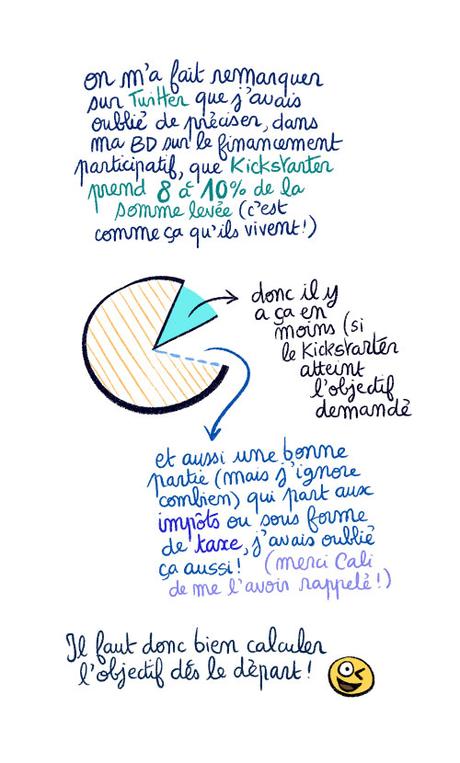 on m'a fait remarquer
sur Twitter que j'avais
oublié de préciser, dans
ma BD sur le financement
participatif, que Kickstarter
prend 8 à 10% de la
somme levée (c'est
comme ça qu'ils vivent!)
donc il y
a ça en
moins (si
le Kickstarter
atteint
l'objectif
demandé
et aussi une bonne
partie (mais j'ignore
combien) qui part aux
impôts ou sous forme
de taxe, j'avais oublié
ça aussi! (merci Cali
de me l'avoir rappelé!)
Il faut donc bien calculer
l'objectif dès le départ!